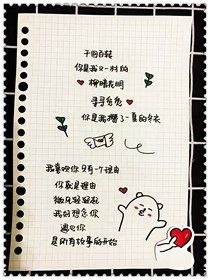 千回百转
你是我又一村的
柳暗花明
寻寻觅觅
你是我攒了一夏的冬衣
我喜欢你只有一个理由
你就是理由
微风轻轻起
我好想念你
遇见你
是所有故事的开始